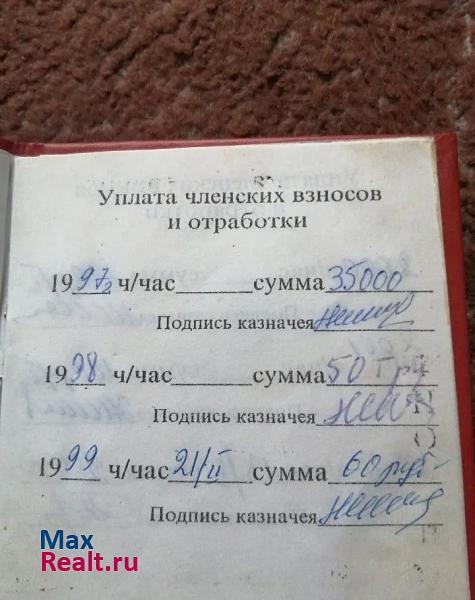 Уплата членских взносов
и отработки
1997г ч/час сумма 35000
Подпись казначея
1998 ч/час сумма 50
Подпись казначея
1999 ч/час 21/II сумма 60 руб-
Подпись казначея
Max
Realt.ru